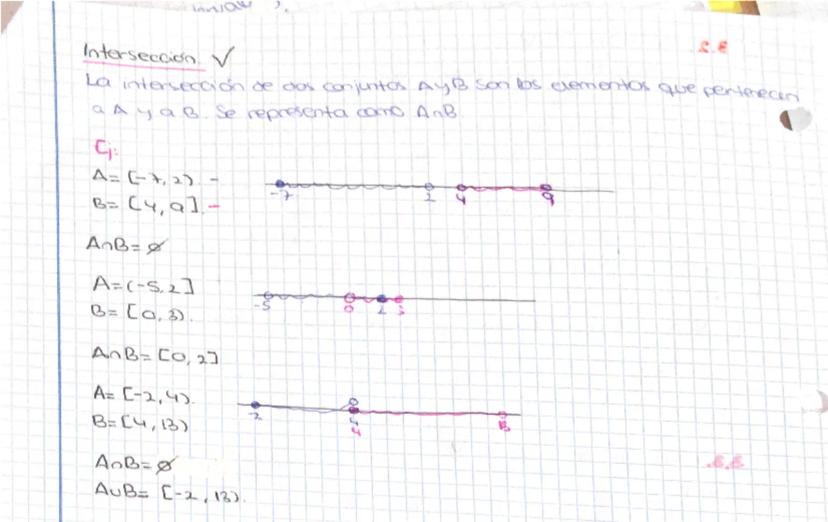 Intersección. √
La intersección de dos conjuntos A y B son los elementos que pertenecen
a A y a B. Se representa como A∩B
Ej:
A= [-7,2) -
B= [4,9] -
-7 2 4 9
A∩B= ∅
A= (-5,2]
B= [0,3).
-5 0 2 3
A∩B= [0,2]
A= [-2,4).
B= [4,13)
-2 4 13
4
A∩B= ∅
A∪B= [-2,13).